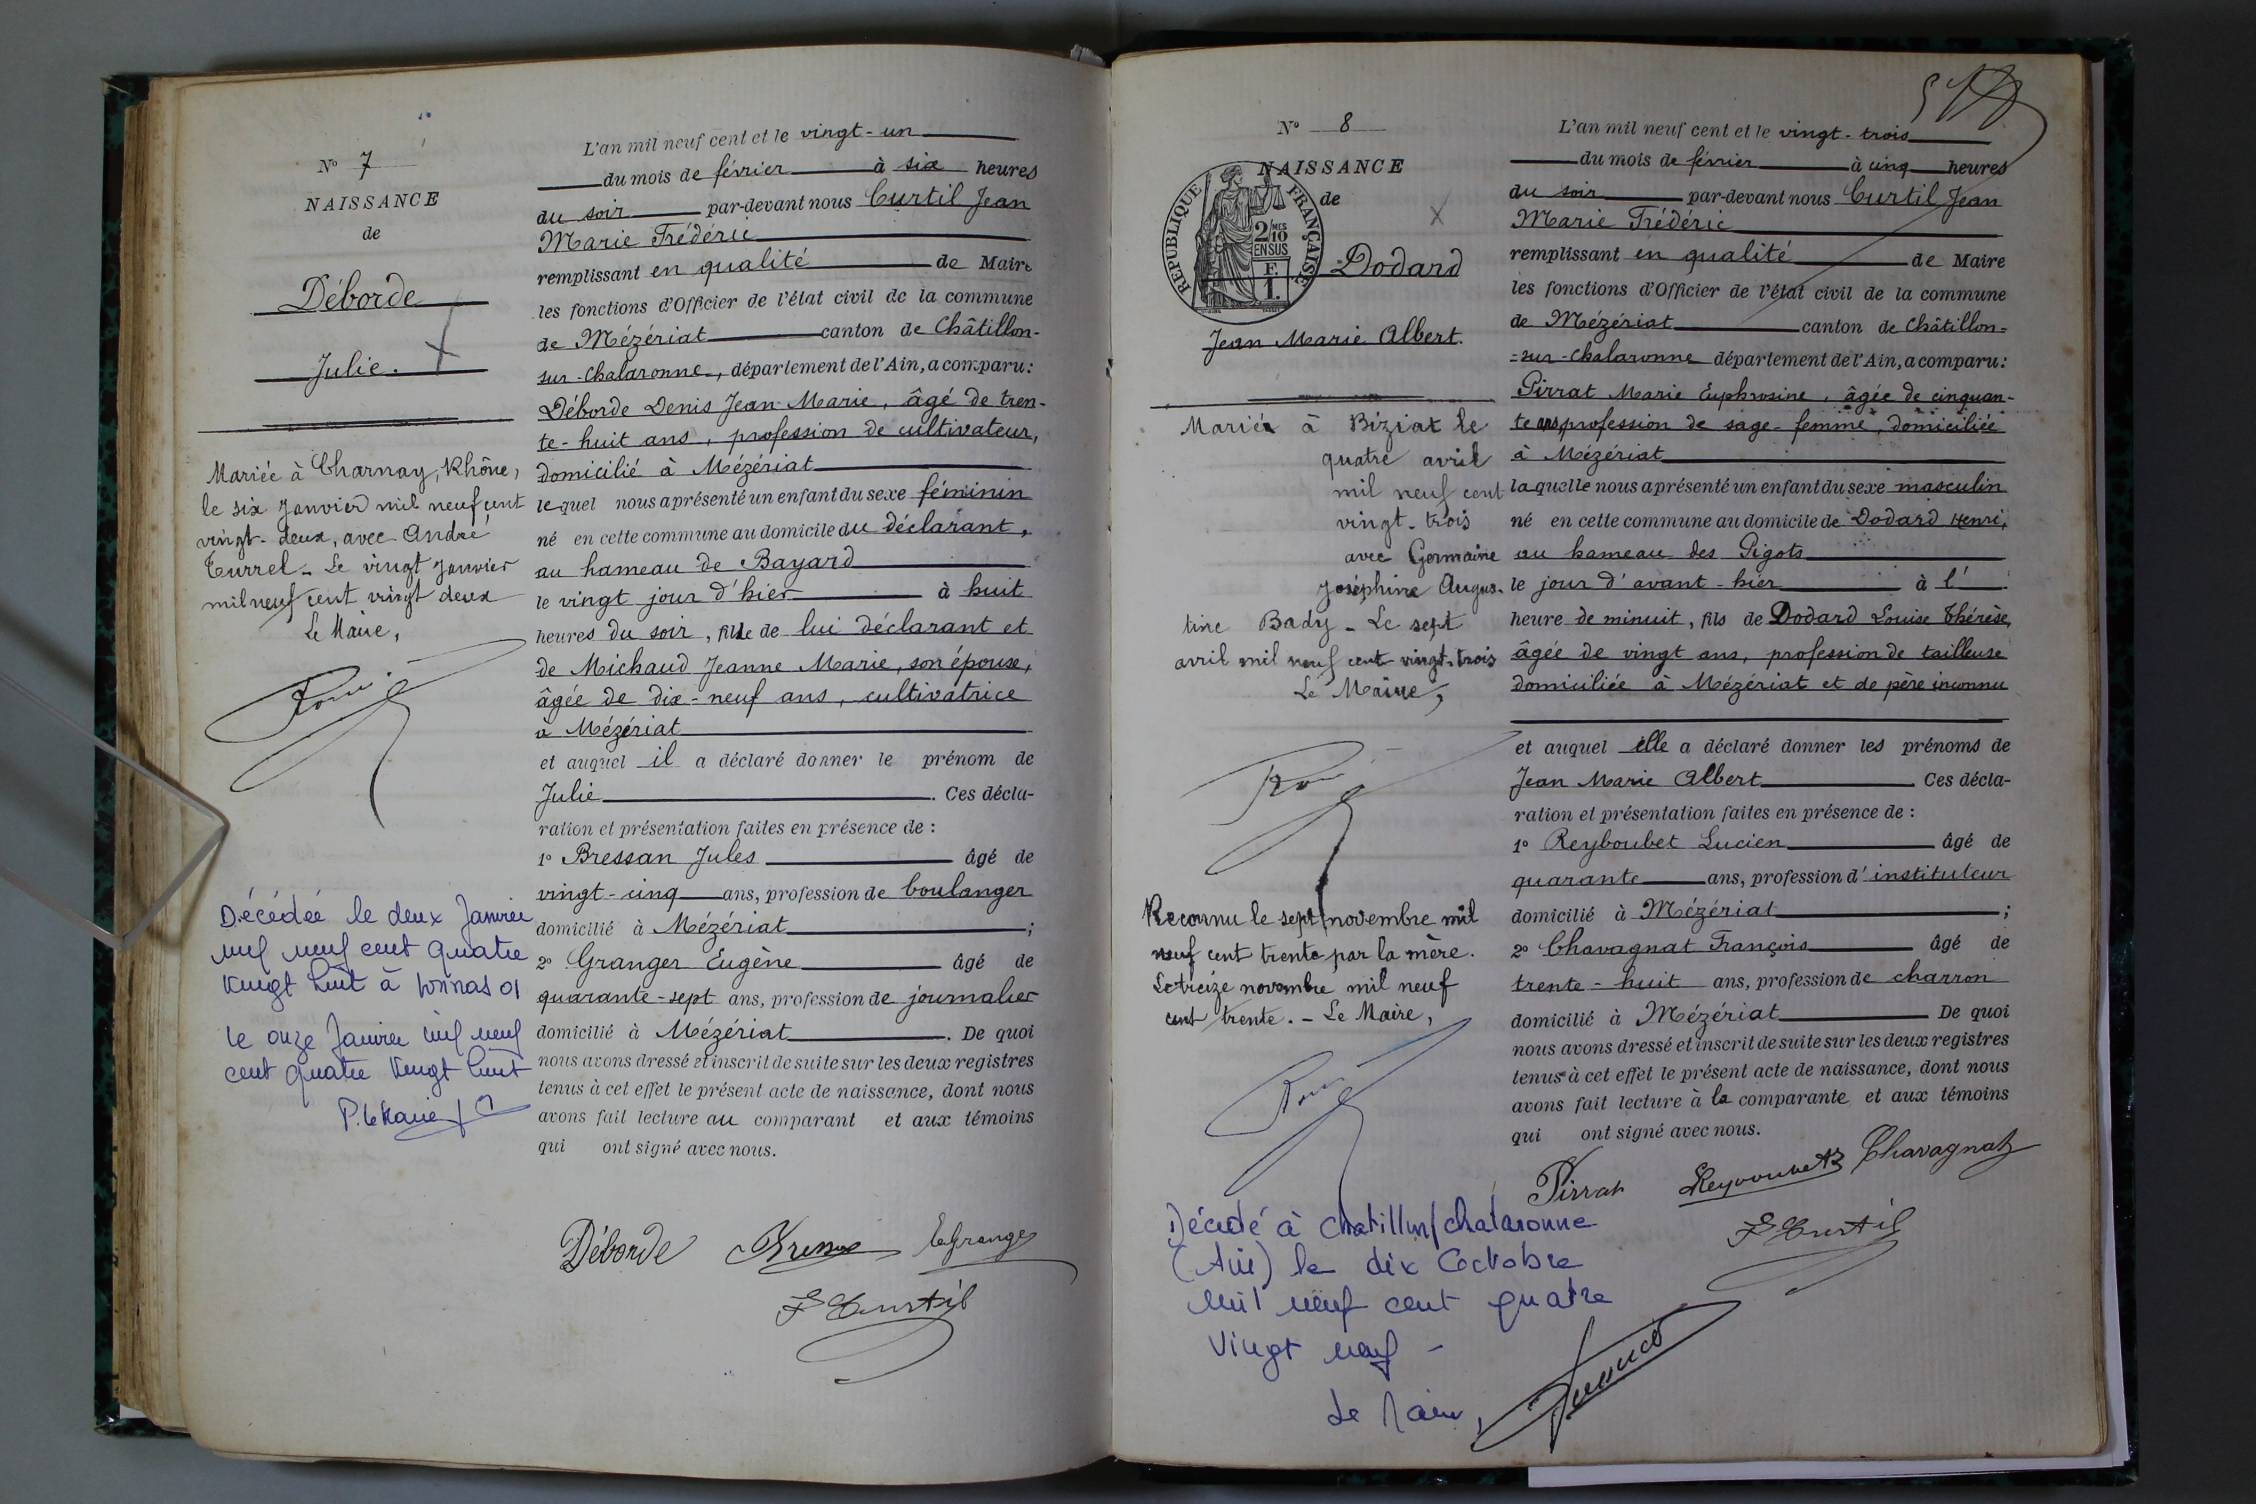 N° 7
NAISSANCE
de
Déborde
Julie.
Mariée à Charnay, Rhône,
le six Janvier mil neuf cent
vingt-deux, avec André
Turrel - Le vingt Janvier
mil neuf cent vingt deux
Le Maire,
Décédée le deux Janvier
mil neuf cent quatre
vingt huit à 01
le onze Janvier mil neuf
cent quatre vingt huit
P. le Maire
L'an mil neuf cent et le vingt-un
du mois de février à six heures
du soir par-devant nous Curtil Jean
Marie Frédéric
remplissant en qualité de Maire
les fonctions d'Officier de l'état civil de la commune
de Mézériat canton de Châtillon-
sur-Chalaronne, département de l'Ain, a comparu:
Déborde Denis Jean Marie, âgé de tren-
te-huit ans, profession de cultivateur,
domicilié à Mézériat
lequel nous a présenté un enfant du sexe féminin
né en cette commune au domicile du déclarant,
au hameau de Bayard
le vingt jour d'hier à huit
heures du soir, fille de lui déclarant et
de Michaud Jeanne Marie, son épouse,
âgée de dix-neuf ans, cultivatrice
à Mézériat
et auquel il a déclaré donner le prénom de
Julie. Ces décla-
ration et présentation faites en présence de :
1° Bressan Jules âgé de
vingt-cinq ans, profession de boulanger
domicilié à Mézériat;
2° Granger Eugène âgé de
quarante-sept ans, profession de journalier
domicilié à Mézériat. De quoi
nous avons dressé et inscrit de suite sur les deux registres
tenus à cet effet le présent acte de naissance, dont nous
avons fait lecture au comparant et aux témoins
qui ont signé avec nous.
Déborde Bressan E Granger
F Curtil
N° 8
NAISSANCE
de
REPUBLIQUE FRANÇAISE
2/10 MES
EN SUS
F.
1.
Dodard
Jean Marie Albert.
Marié à Biziat le
quatre avril
mil neuf cent
vingt-trois
avec Germaine
Joséphine Augus-
tine Bady - Le sept
avril mil neuf cent vingt-trois
Le Maire,
Reconnu le sept novembre mil
neuf cent trente par la mère.
Le treize novembre mil neuf
cent trente. - Le Maire,
L'an mil neuf cent et le vingt-trois
du mois de février à cinq heures
du soir par-devant nous Curtil Jean
Marie Frédéric
remplissant en qualité de Maire
les fonctions d'Officier de l'état civil de la commune
de Mézériat canton de Châtillon-
-sur-Chalaronne département de l'Ain, a comparu:
Pirrat Marie Euphrosine, âgée de cinquan-
te ans, profession de sage-femme, domiciliée
à Mézériat
laquelle nous a présenté un enfant du sexe masculin
né en cette commune au domicile de Dodard Henri,
au hameau des Pigots
le jour d'avant-hier à l'
heure de minuit, fils de Dodard Louise Thérèse,
âgée de vingt ans, profession de tailleuse
domiciliée à Mézériat et de père inconnu
et auquel elle a déclaré donner les prénoms de
Jean Marie Albert Ces décla-
ration et présentation faites en présence de :
1° Reyboubet Lucien âgé de
quarante ans, profession d'instituteur
domicilié à Mézériat;
2° Chavagnat François âgé de
trente-huit ans, profession de charron
domicilié à Mézériat De quoi
nous avons dressé et inscrit de suite sur les deux registres
tenus à cet effet le présent acte de naissance, dont nous
avons fait lecture à la comparante et aux témoins
qui ont signé avec nous.
Pirrat Reyboubet Chavagnat
F Curtil
Décédé à Chatillon/chalaronne
(Ain) le dix Octobre
mil neuf cent quatre
vingt neuf -
Le Maire,